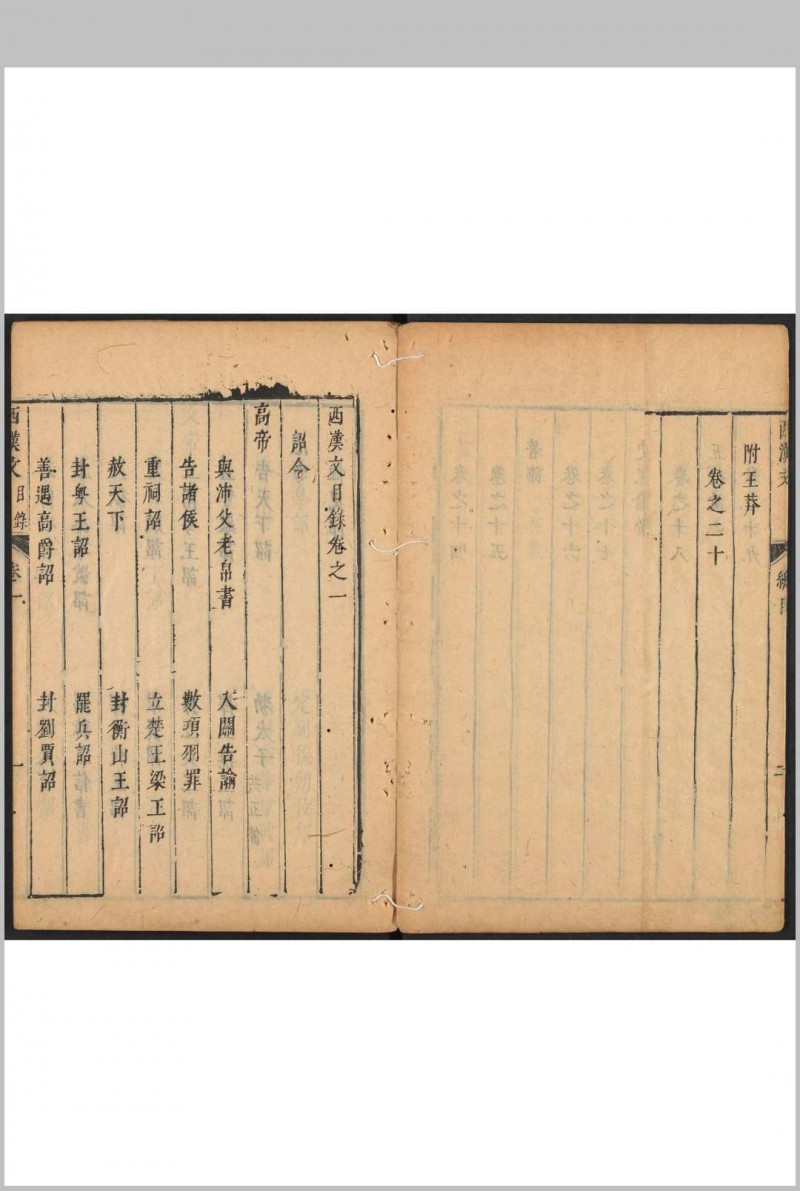 西漢文
總目
二
附王莽
卷之二十
西漢文目錄卷之一
詔令
高帝
與沛父老帛書
入關告諭
告諸侯
數項羽罪
重祠詔
立楚王梁王詔
赦天下
封衡山王詔
封粵王詔
罷兵詔
善遇高爵詔
封劉賈詔
西漢文
目錄
卷一
一